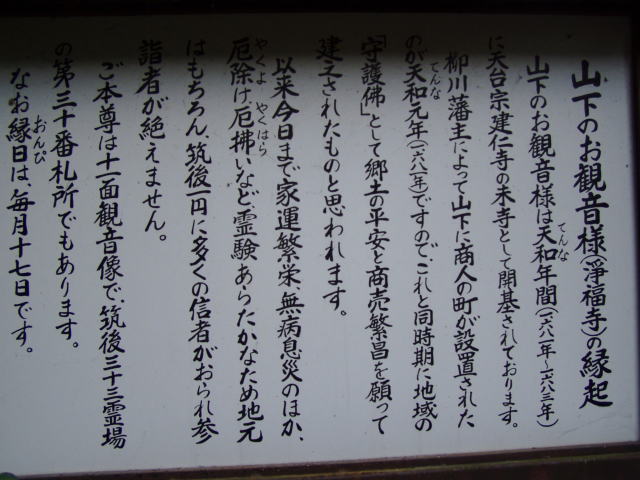 山下のお観音様(淨福寺)の縁起
山下のお観音様は天和年間(一六八一年～一六八三年)
てんな
に天台宗、建仁寺の末寺として開基されております。
柳川藩主によって山下に商人の町が設置された
のが天和元年(一六八一年)ですので、これと同時期に地域の
てんな
「守護佛」として郷土の平安と商売繁昌を願って
建立されたものと思われます。
以来今日まで家運繁栄、無病息災のほか、
厄除け、厄拂いなど、霊験あらたかなため地元
やくよ やくはら
はもちろん、筑後一円に多くの信者がおられ参
詣者が絶えません。
ご本尊は十一面観音像で、筑後三十三霊場
の第三十番札所でもあります。
なお縁日は、毎月十七日です。
おんび